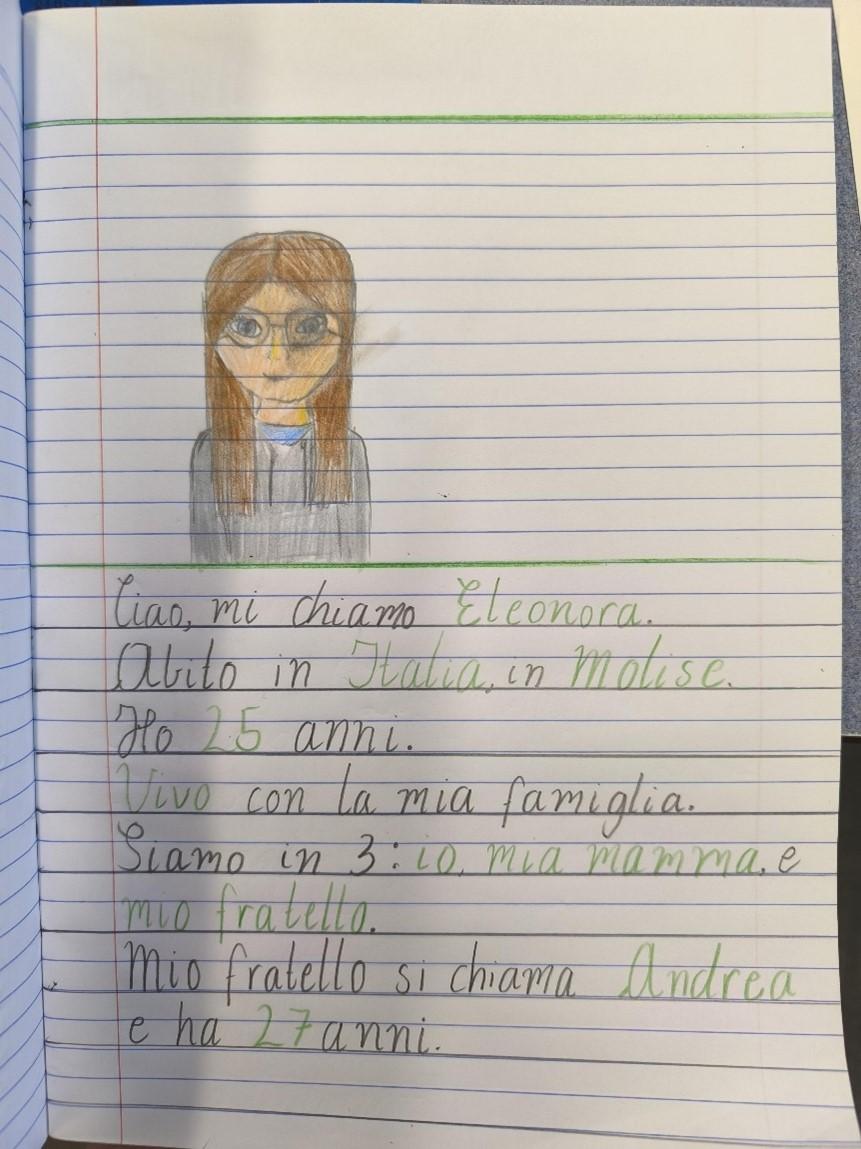 Ciao, mi chiamo Eleonora.
Abito in Italia, in Molise.
Ho 25 anni.
Vivo con la mia famiglia.
Siamo in 3: io, mia mamma, e
mio fratello.
Mio fratello si chiama Andrea
e ha 27 anni.